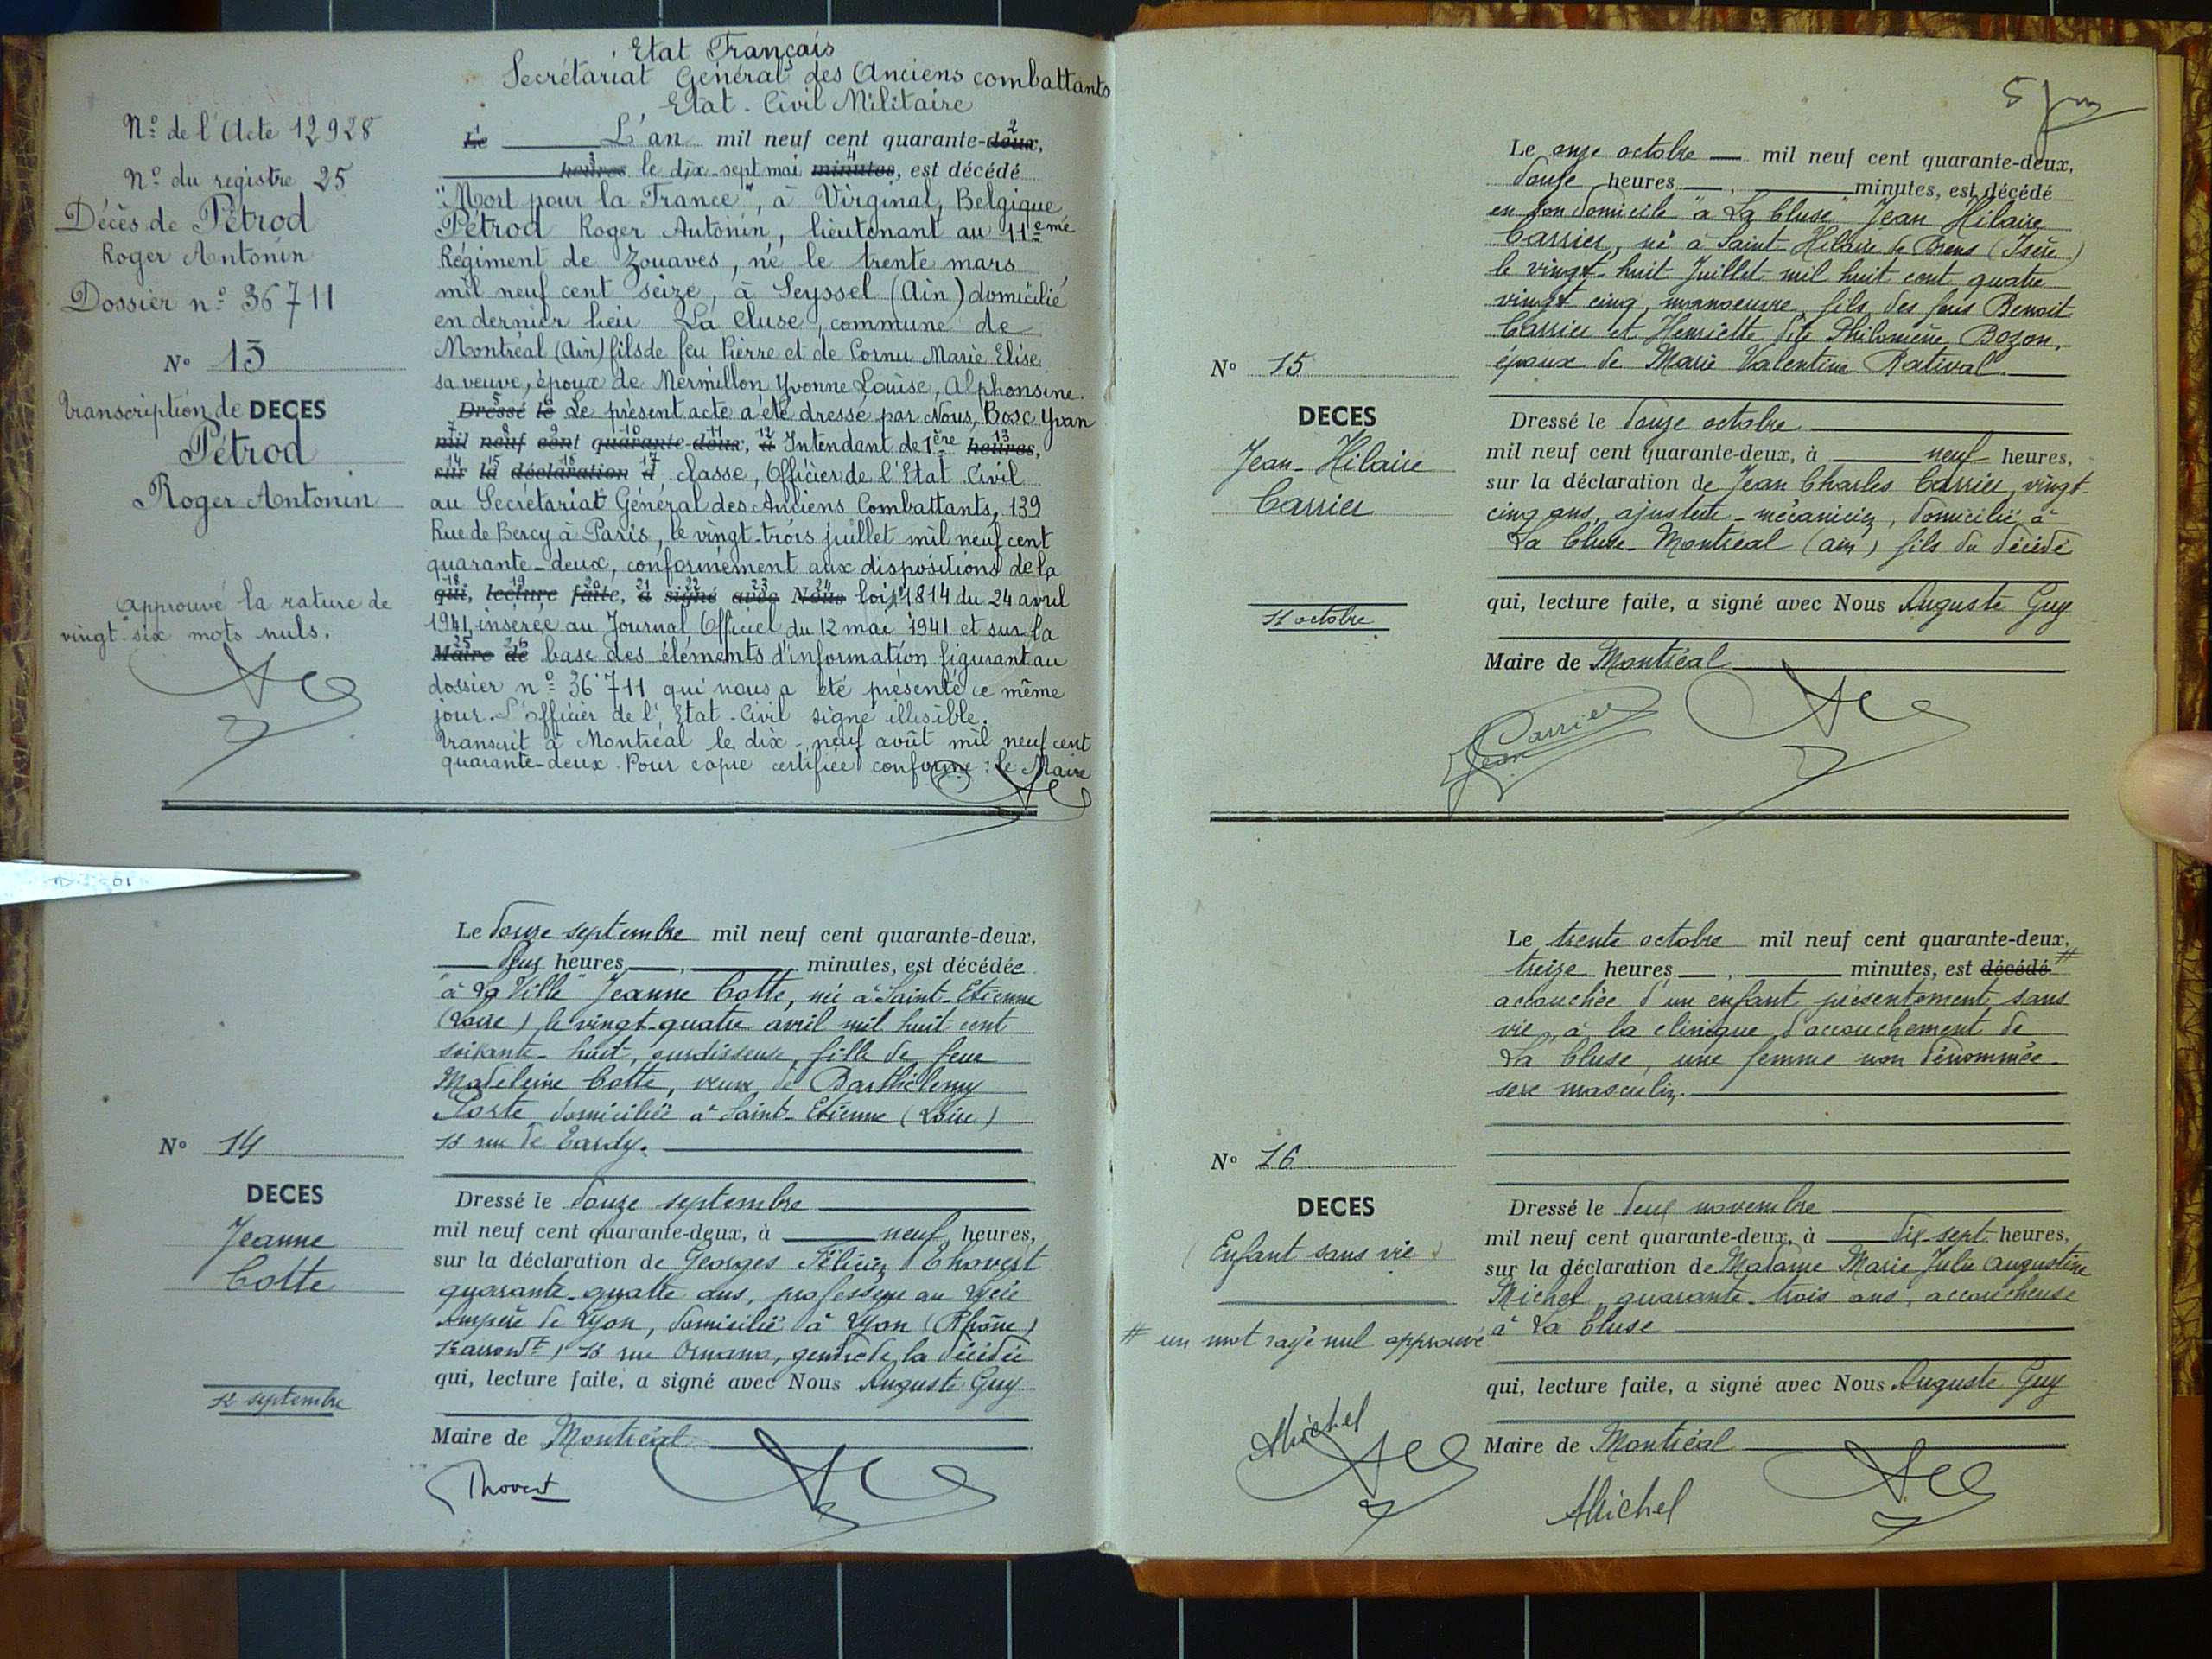 Etat Français
Secrétariat Général des Anciens combattants
Etat-Civil Militaire
N° de l'Acte 12928
N° du registre 25
Décès de Pétrod
Roger Antonin
Dossier n° 36711
N° 13
Transcription de DECES
Pétrod
Roger Antonin
Approuvé la rature de
vingt-six mots nuls.
1 Le L'an mil neuf cent quarante-deux 2,
3 heures le dix-sept mai 4 minutes, est décédé
"Mort pour la France", à Virginal, Belgique
Pétrod Roger Antonin, lieutenant au 11ème
Régiment de Zouaves, né le trente mars
mil neuf cent seize, à Seyssel (Ain) domicilié
en dernier lieu La Cluse, commune de
Montréal (Ain) fils de feu Pierre et de Cornu Marie Elise
sa veuve, époux de Mermillon Yvonne Louise, Alphonsine.
5 Dressé 6 le Le présent acte a été dressé par Nous, Bosc Yvan
7 mil 8 neuf 9 cent 10 quarante-11 deux, 12 à Intendant de 1ère 13 heures,
14 sur 15 la 16 déclaration 17 d classe, Officier de l'Etat Civil
au Secrétariat Général des Anciens Combattants, 139
Rue de Bercy à Paris, le vingt-trois juillet mil neuf cent
quarante-deux, conformément aux dispositions de la
18 qui, 19 lecture 20 faite, 21 a 22 signé 23 avec 24 Nous loi n° 1814 du 24 avril
1941, insérée au Journal Officiel du 12 mai 1941 et sur la
25 Maire 26 de base des éléments d'information figurant au
dossier n° 36711 qui nous a été présenté ce même
jour. L'Officier de l'Etat-Civil signé illisible.
Transcrit à Montréal le dix-neuf août mil neuf cent
quarante-deux. Pour copie certifiée conforme : le Maire
N° 14
DECES
Jeanne
Cotte
12 septembre
Le douze septembre mil neuf cent quarante-deux,
deux heures, minutes, est décédée
"à La Ville" Jeanne Cotte, née à Saint-Etienne
(Loire) le vingt-quatre avril mil huit cent
soixante-huit, ourdisseuse, fille de feue
Madeleine Cotte, veuve de Barthélemy
domiciliée à Saint-Etienne (Loire)
rue de Tardy.
Dressé le douze septembre
mil neuf cent quarante-deux, à neuf heures,
sur la déclaration de Georges Félicien Thovert
quarante-quatre ans, professeur au Lycée
Ampère de Lyon, domicilié à Lyon (Rhône)
rue Ornano, gendre de la décédée
qui, lecture faite, a signé avec Nous Auguste Guy
Maire de Montréal
Thovert
5
N° 15
DECES
Jean-Hilaire
Carrier
12 octobre
Le onze octobre mil neuf cent quarante-deux,
douze heures, minutes, est décédé
en son domicile "à La Cluse" Jean Hilaire
Carrier, né à Saint-Hilaire de Brens (Isère)
le vingt-huit Juillet mil huit cent quatre
vingt cinq, manoeuvre, fils des feus Benoit
Carrier et Henriette dite Philomène Bozon,
époux de Marie Valentine Rativat.
Dressé le douze octobre
mil neuf cent quarante-deux, à neuf heures,
sur la déclaration de Jean Charles Carrier, vingt-
cinq ans, ajusteur-mécanicien, domicilié à
La Cluse-Montréal (Ain) fils du décédé
qui, lecture faite, a signé avec Nous Auguste Guy
Maire de Montréal
Jean Carrier
N° 16
DECES
(Enfant sans vie)
# un mot rayé nul approuvé
Michel
Le trente octobre mil neuf cent quarante-deux,
treize heures, minutes, est décédé #
accouchée d'un enfant présentement sans
vie, à la clinique d'accouchement de
La Cluse, une femme non dénommée.
sexe masculin.
Dressé le deux novembre
mil neuf cent quarante-deux, à dix-sept heures,
sur la déclaration de Madame Marie Julie Augustine
Michel, quarante-trois ans, accoucheuse
à La Cluse
qui, lecture faite, a signé avec Nous Auguste Guy
Maire de Montréal
Michel